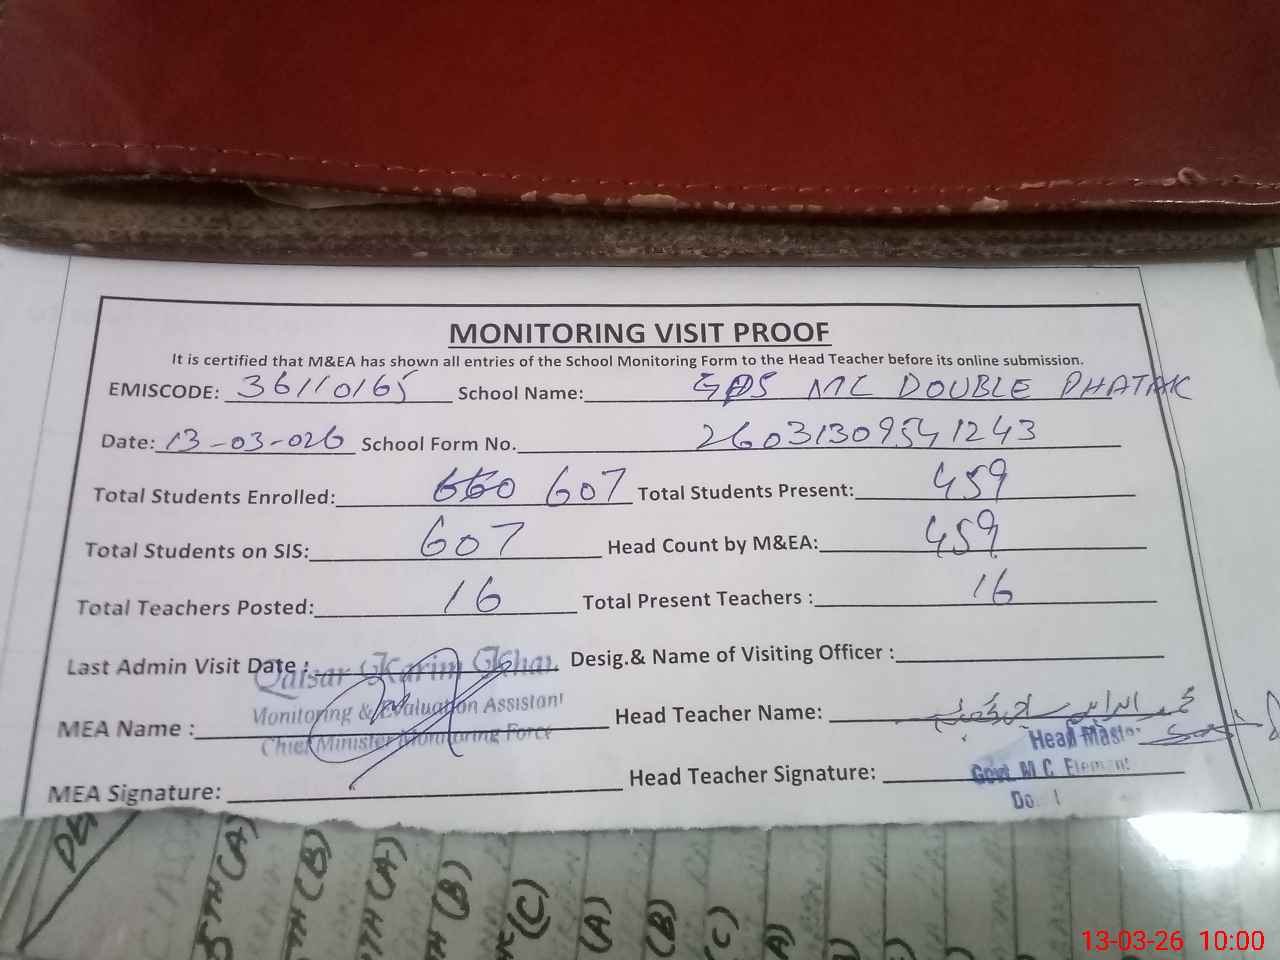 MONITORING VISIT PROOF
It is certified that M&EA has shown all entries of the School Monitoring Form to the Head Teacher before its online submission.
EMISCODE: 36110165 School Name: GPS MC DOUBLE PHATAK
Date: 13-03-026 School Form No. 26031309541243
Total Students Enrolled: 660 607 Total Students Present: 459
Total Students on SIS: 607 Head Count by M&EA: 459
Total Teachers Posted: 16 Total Present Teachers : 16
Last Admin Visit Date : Desig.& Name of Visiting Officer :
Qaisar Karim
Monitoring & Evaluation Assistant
Chief Minister Monitoring Force
MEA Name : Head Teacher Name:
Head Master
Govt. M C Element
MEA Signature: Head Teacher Signature:
5TH (A)
TH (B)
TH (A)
TH (B)
(C)
(A)
(B)
(C)
A)
13-03-26 10:00